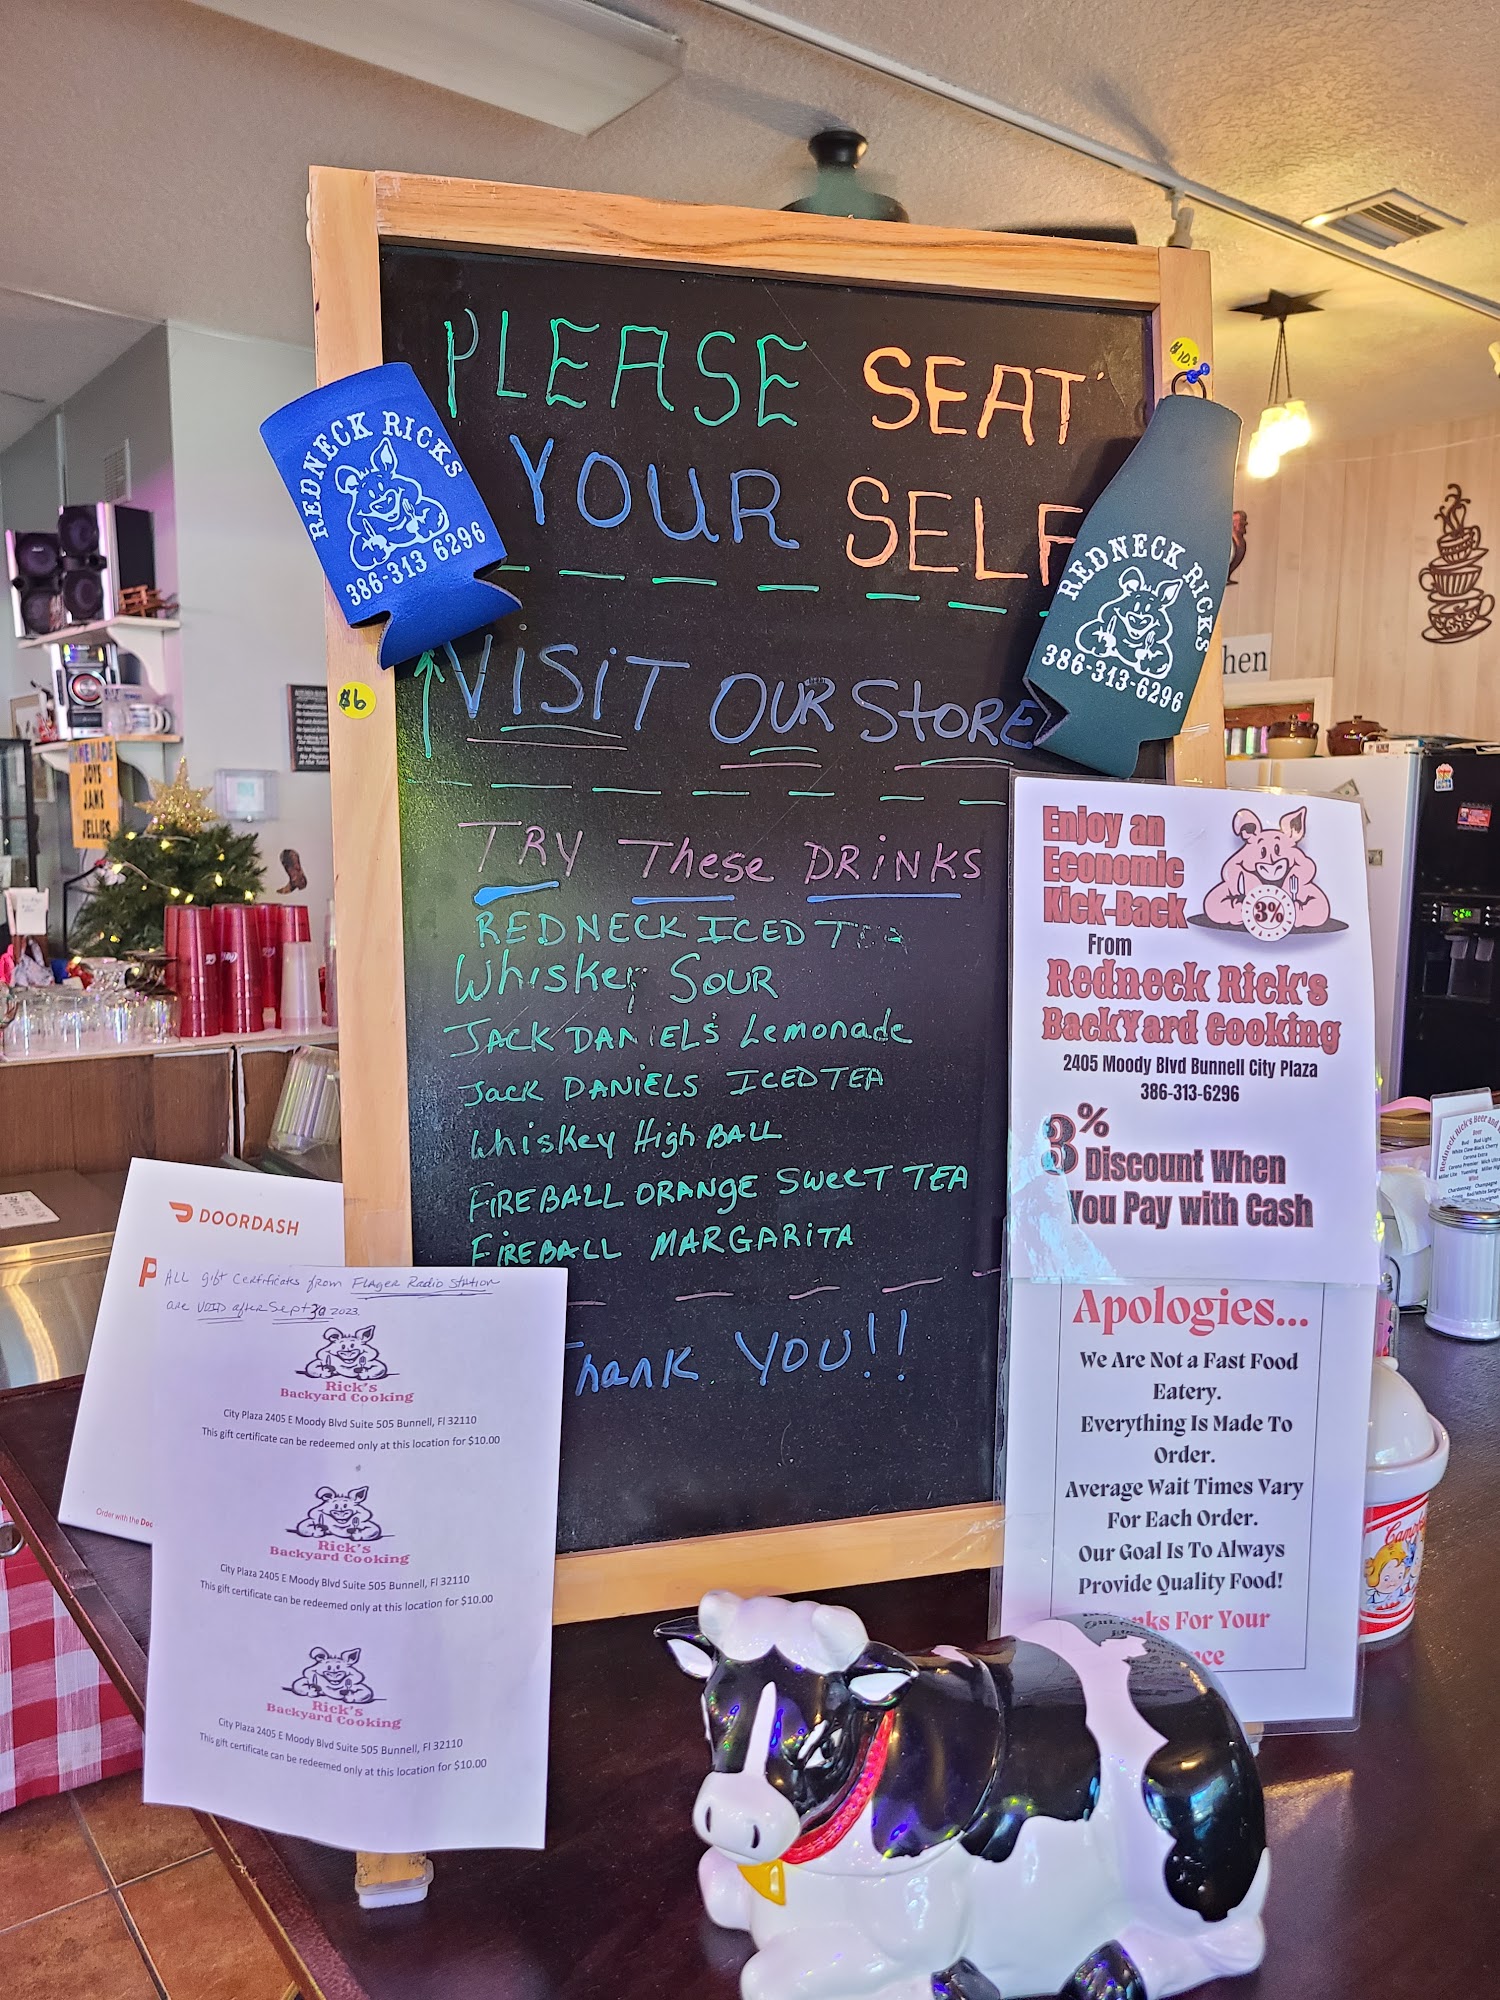 PLEASE SEAT
YOUR SELF
VISIT OUR STORE
TRY These DRINKS
REDNECK ICED TEA
Whiskey SOUR
JACK DANIEL'S Lemonade
Jack DANIELS ICED TEA
Whiskey High BALL
FIREBALL ORANGE Sweet TEA
FIREBALL MARGARITA
Thank YOU!!
REDNECK RICKS
386-313 6296
$6
$10.
REDNECK RICKS
386-313-6296
Enjoy an
Economic
Kick-Back
3%
From
Redneck Rick's
BackYard Cooking
2405 Moody Blvd Bunnell City Plaza
386-313-6296
3%
Discount When
You Pay with Cash
Apologies...
We Are Not a Fast Food
Eatery.
Everything Is Made To
Order.
Average Wait Times Vary
For Each Order.
Our Goal Is To Always
Provide Quality Food!
For Your
DOORDASH
P
Order with the Doo
ALL gift Certificates from Flager Radio Station
are VOID after Sept 30 2023
Rick's
Backyard Cooking
City Plaza 2405 E Moody Blvd Suite 505 Bunnell, Fl 32110
This gift certificate can be redeemed only at this location for $10.00
Rick's
Backyard Cooking
City Plaza 2405 E Moody Blvd Suite 505 Bunnell, Fl 32110
This gift certificate can be redeemed only at this location for $10.00
Rick's
Backyard Cooking
City Plaza 2405 E Moody Blvd Suite 505 Bunnell, Fl 32110
This gift certificate can be redeemed only at this location for $10.00
JAMS
JELLIES
hen
Redneck Rick's Beer and
Beer
Bud Bud Light
White Claw-Black Cherry
Corona Extra
Wine
Chardonnay Champagne